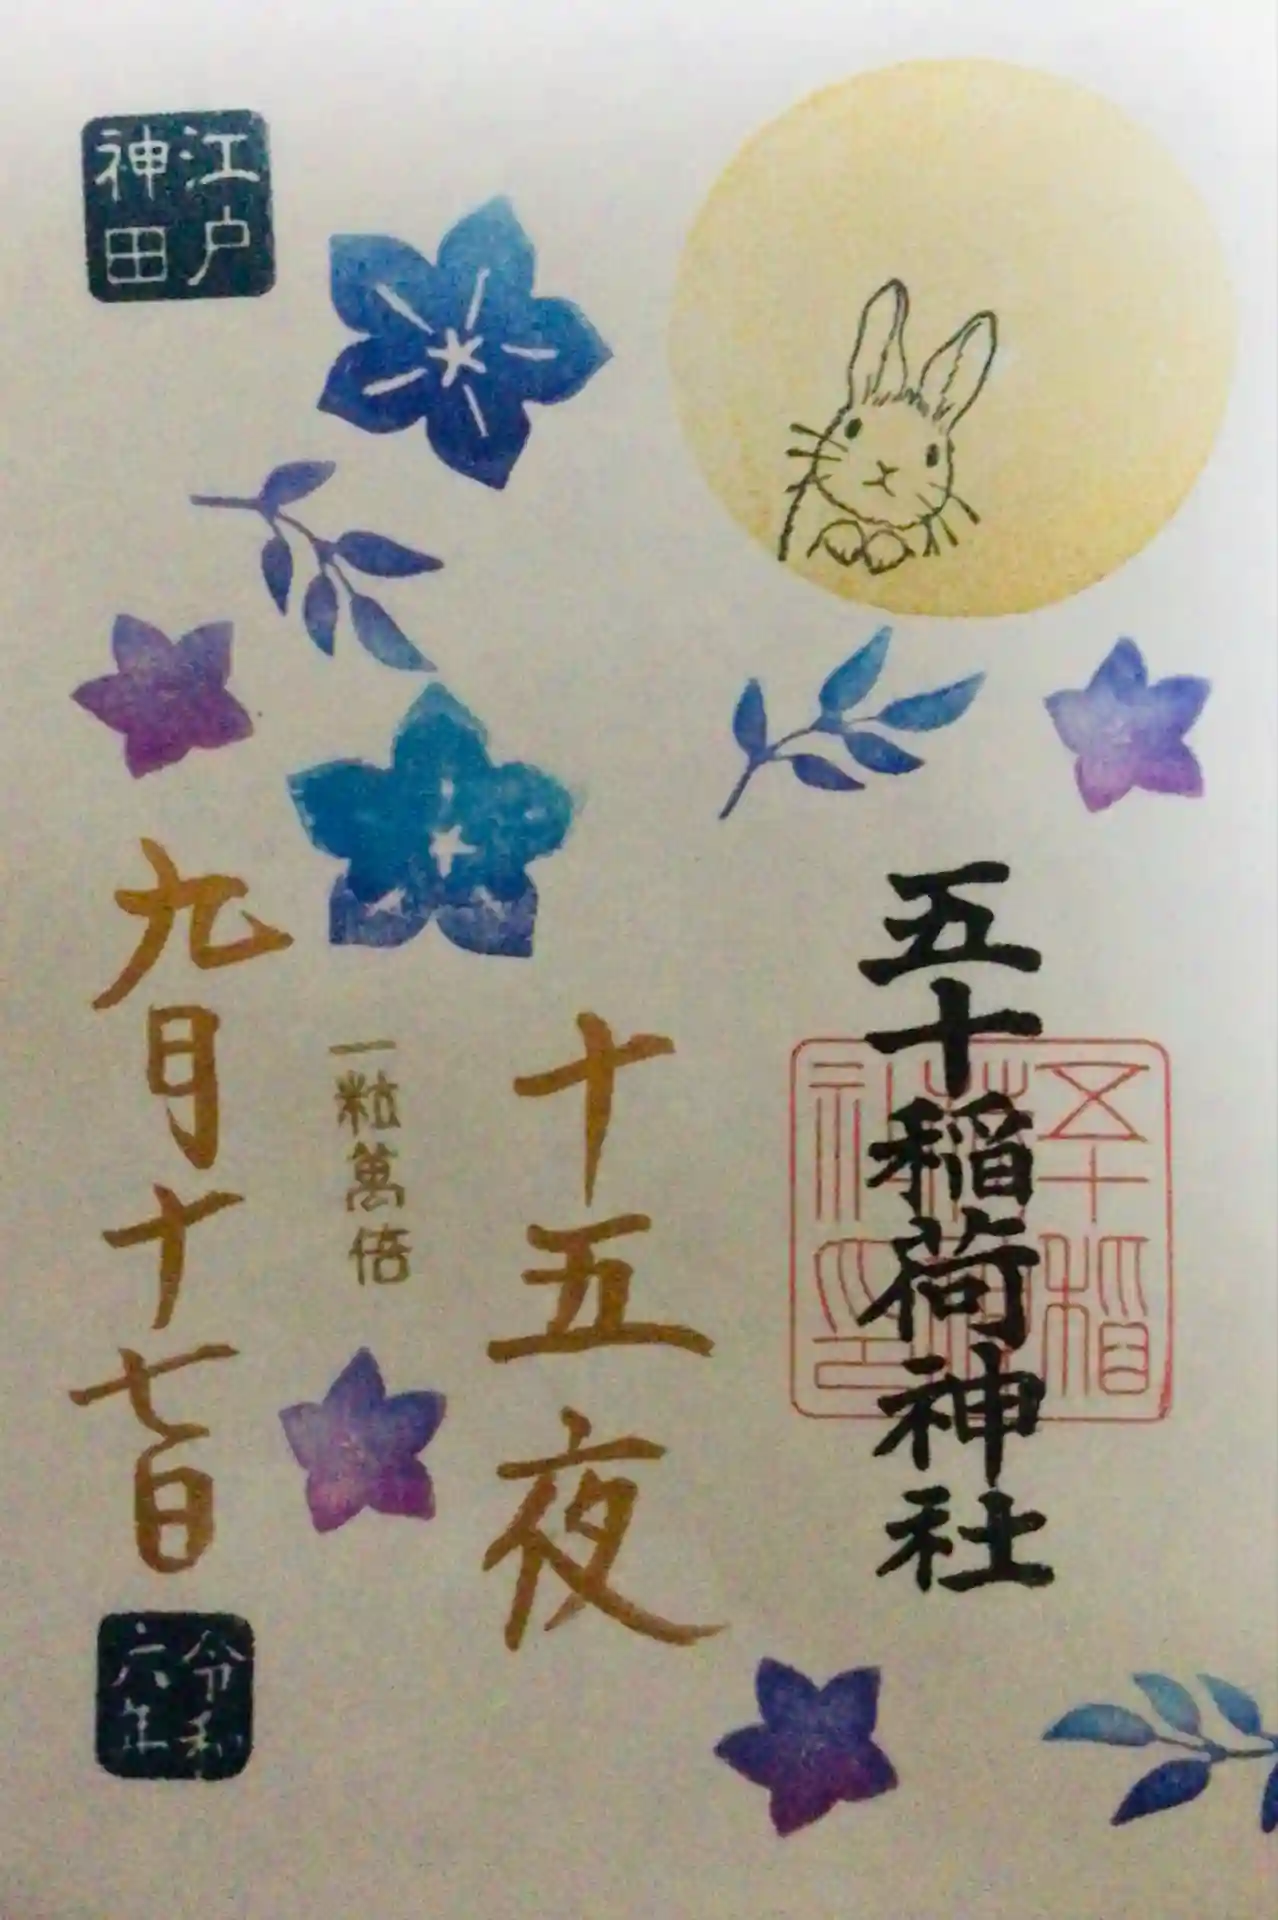 五十稲荷神社
五十稲荷神社印
十五夜
一粒萬倍
江戸
神田
九月十七日
令和
六年